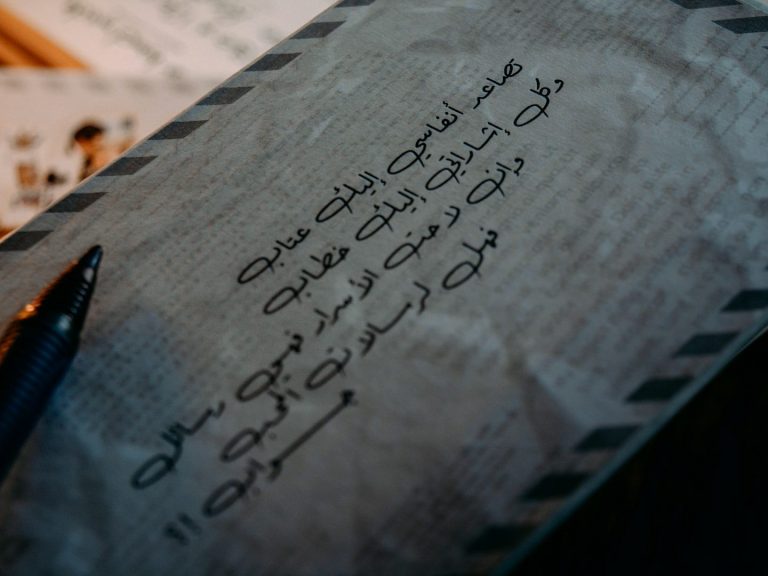 تصاعد أنفاسي إليك عتاب
وكل إشاراتي إليك خطاب
وإن لاحت الأسرار فهي رسائل
فهل لرسالات المحب
جواب !!